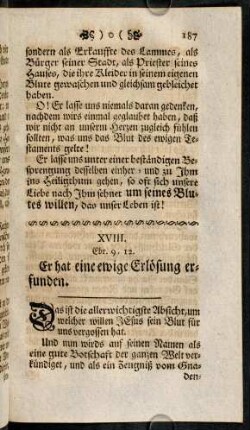 ( o ) 187
sondern als Erkauffte des Lammes, als
Bürger seiner Stadt, als Priester seines
Hauses, die ihre Kleider in seinem eigenen
Blute gewaschen und gleichsam gebleichet
haben.
O! Er lasse uns niemals daran gedenken,
nachdem wirs einmal geglaubet haben, daß
wir nicht an unserm Herzen zugleich fühlen
sollten, was uns das Blut des ewigen Te-
staments gelte!
Er lasse uns unter einer beständigen Be-
sprengung desselben einher- und zu Ihm
ins Heiligthum gehen, so oft sich unsere
Liebe nach Ihm sehnet um seines Blu-
tes willen, das unser Leben ist!
XVIII.
Ebr. 9. 12.
Er hat eine ewige Erlösung er-
funden.
Das ist die allerwichtigste Absicht, um
welcher willen JEsus sein Blut für
uns vergossen hat.
Und nun wirds auf seinen Namen als
eine gute Botschaft der ganzen Welt ver-
kündiget, und als ein Zeugniß vom Gna-
den-